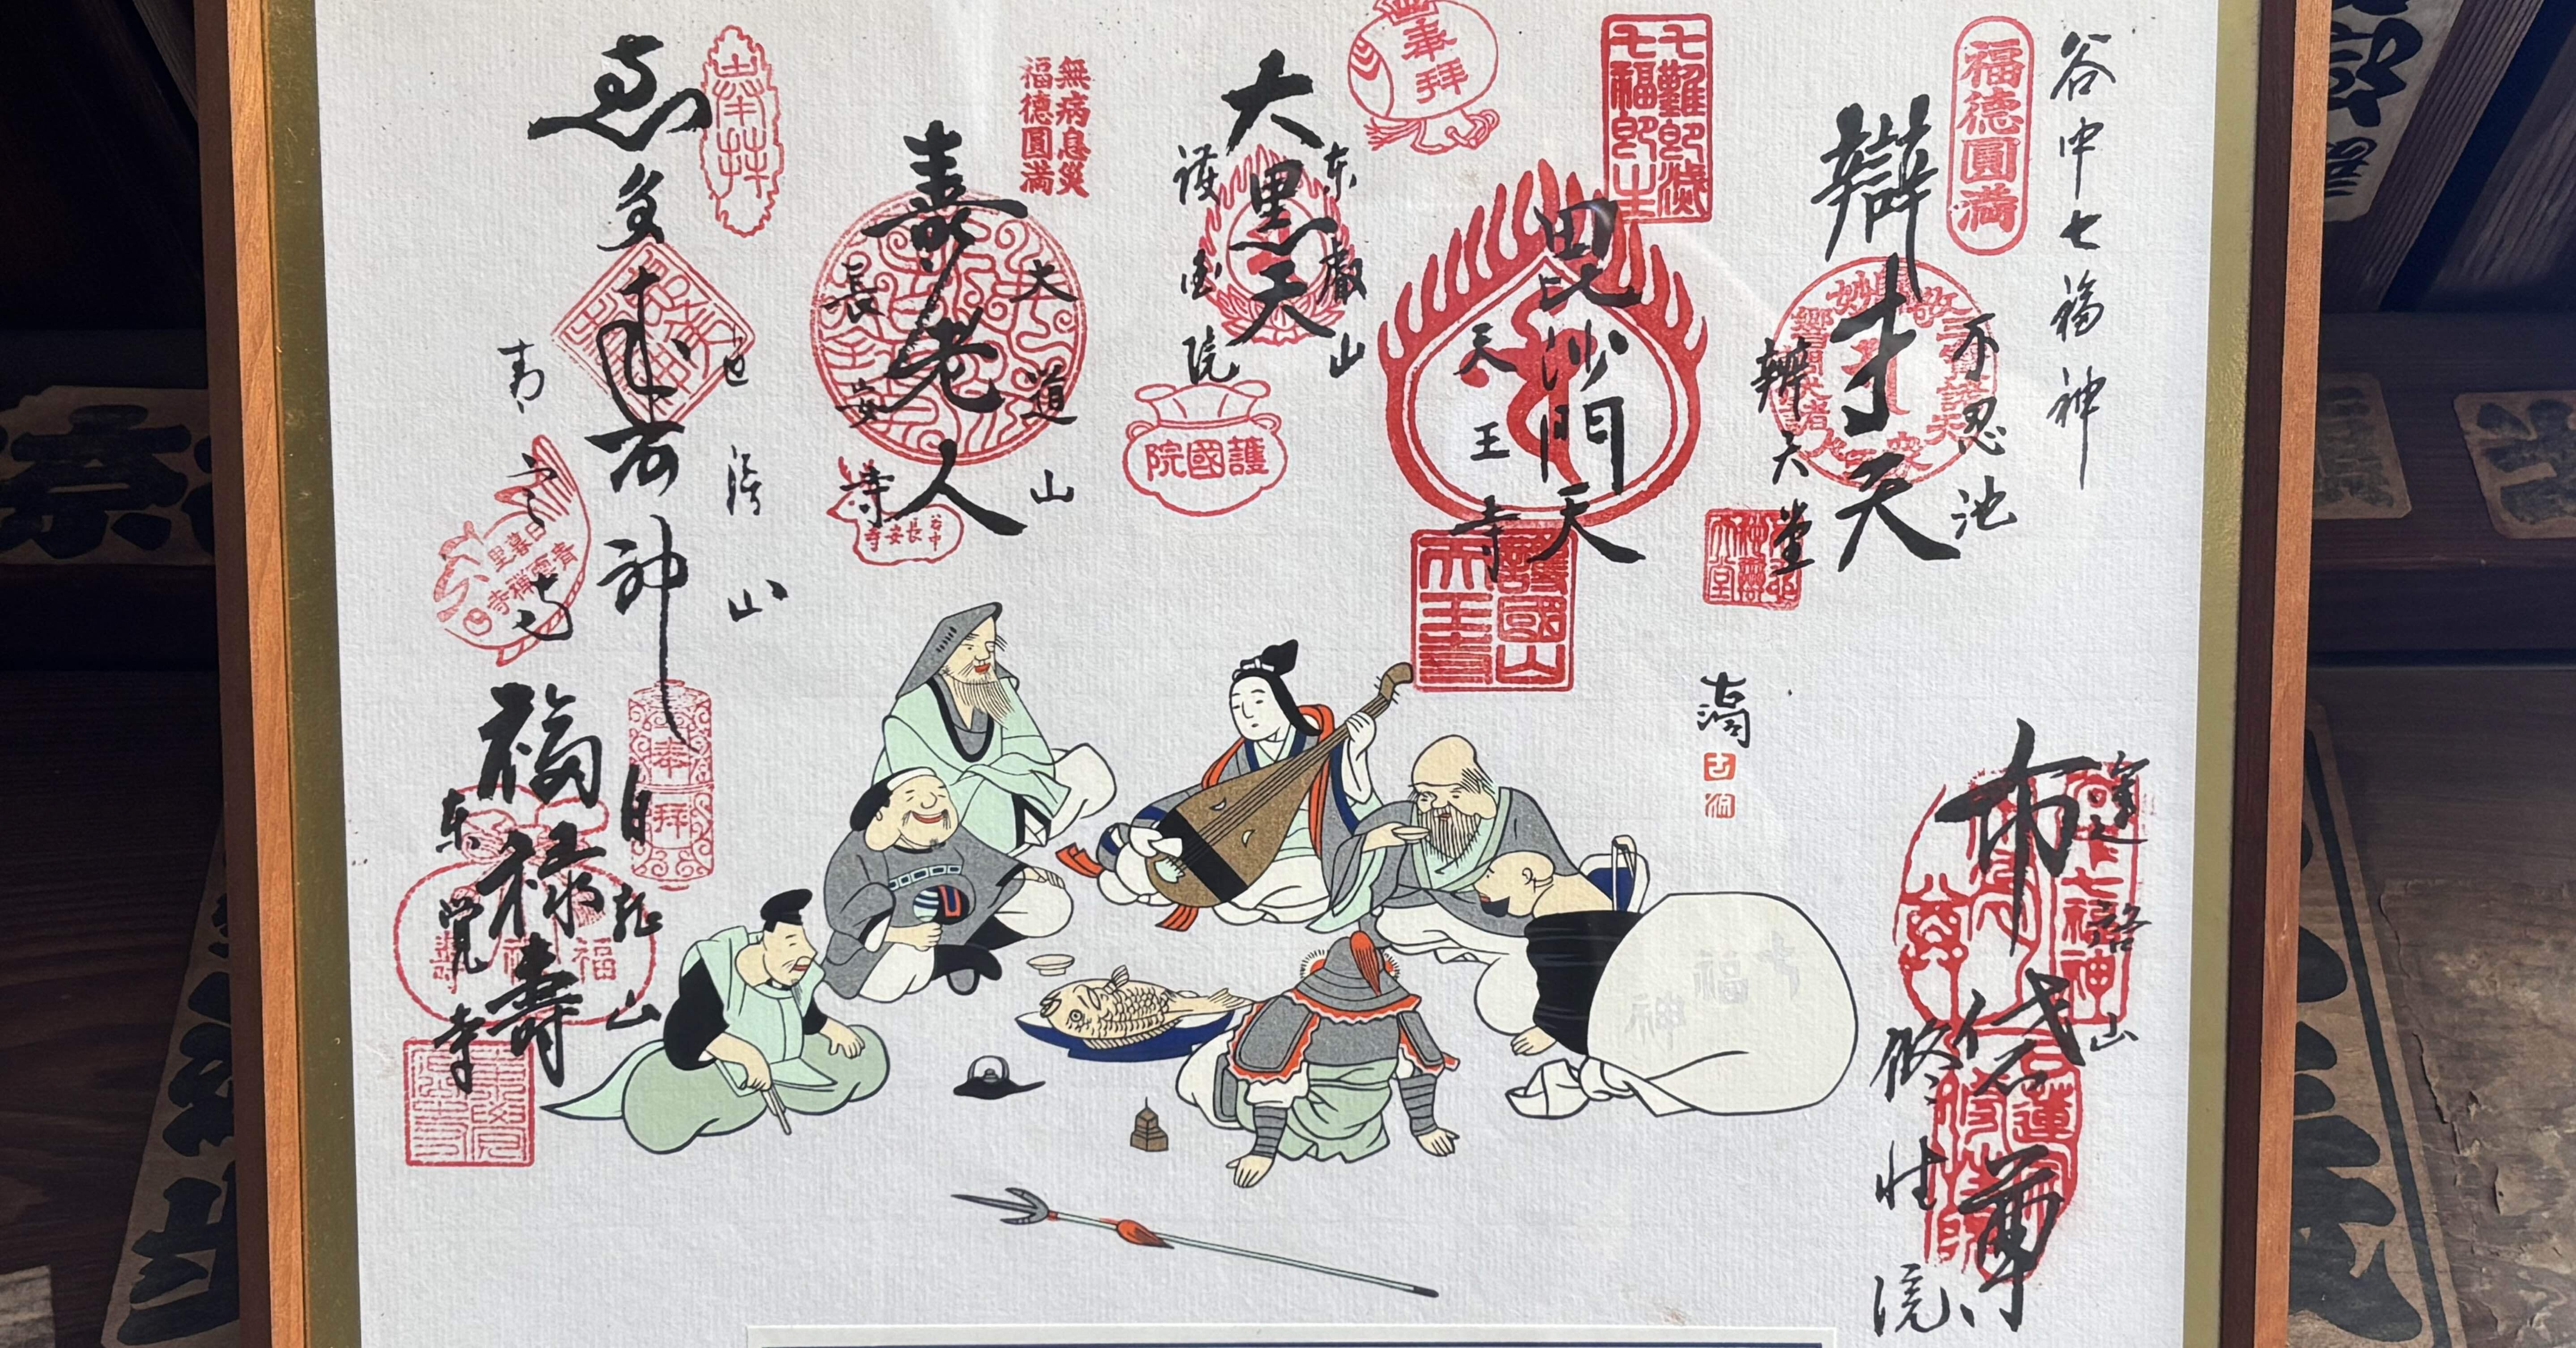 谷中七福神
福徳圓満
不忍池
辯才天
辨天堂
七難即滅
七福即生
毘沙門天
天王寺
護國山
天王寺
奉拝
東叡山
大黒天
護国院
護國院
無病息災
福徳圓満
大道山
寿老人
長安寺
谷中
長安寺
奉拝
恵比寿神
青雲寺
日暮里
青雲禅寺
奉拝
福禄寿
東覚寺
福禄寿
布袋尊
修性院
七福神
七福神